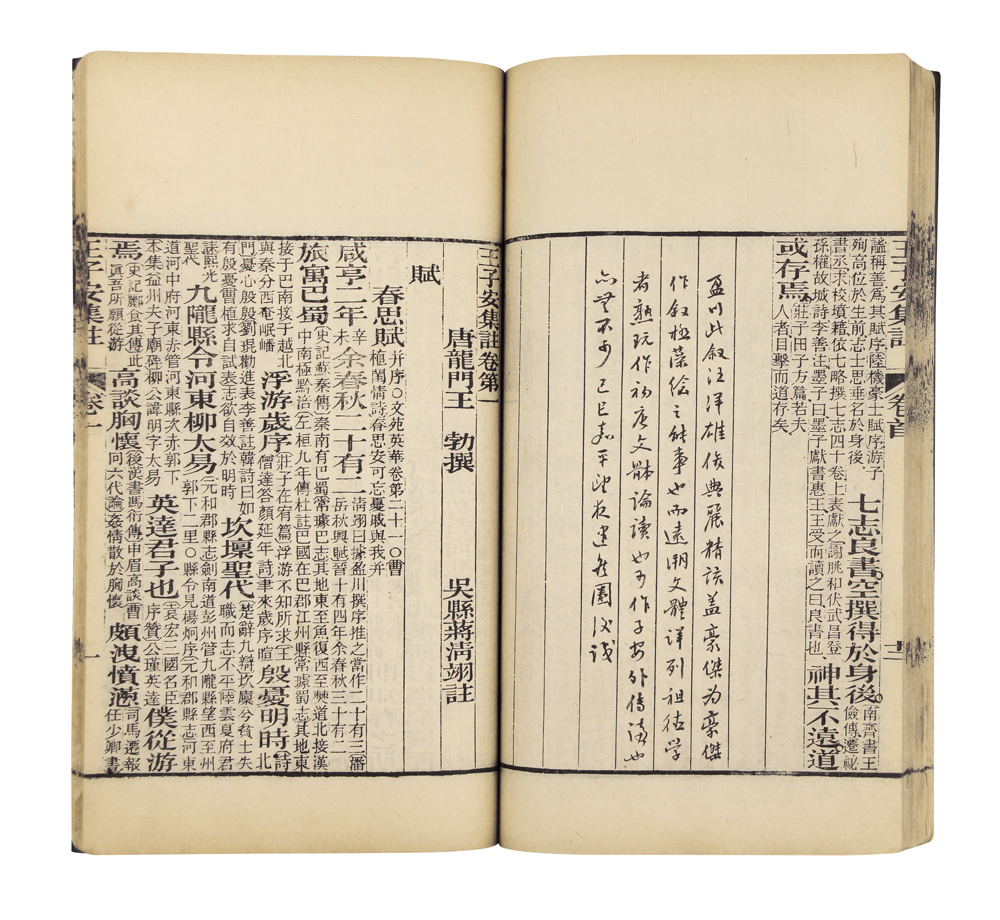 謚稱善爲其賦序陸機豪士賦序游子
殉高位於生前志士思垂名於身後
七志良書空撰得於身後
南齊書王
儉傳遷祕
書丞求校墳籍依七略撰七志四十卷上表獻之謝朓和伏武昌登
孫權故城詩李善注墨子曰墨子獻書惠王王受而讀之曰良書也
神其不遠道
或存焉
莊子田子方篇若夫
人者目擊而道存矣
盈川此叙汪洋雄俊典麗精該蓋豪傑爲豪傑
作叙極藻繪之能事也而遠溯文體詳列祖祐學
者熟玩作初唐文體論讀也可作子安外傳讀也
亦無不可己巳嘉平
王子安集註
卷首
王子安集註卷第一
唐龍門王 勃撰
吳縣蔣清翊註
賦
春思賦
并序○文苑英華卷第二十一○曹
植閨情詩春思安可忘憂戚與我并
咸亨二年
辛
未
余春秋二十有二
清翊曰據盈川撰序推之當作二十有三潘
岳秋興賦晉十有四年余春秋三十有二
旅寓巴蜀
史記蘇秦傳秦南有巴蜀常璩巴志其地東至魚復西至僰道北接漢
中南極黔涪左桓九年傳杜註巴國在巴郡江州縣常璩蜀志其地東
接于巴南接于越北
與秦分西奄岷嶓
浮游歲序
莊子在宥篇浮游不知所求王
僧達答顏延年詩聿來歲序暄
殷憂明時
詩北
門憂心殷殷劉琨勸進表李善註韓詩曰如
有殷憂曹植求自試表志欲自效於明時
坎壈聖代
楚辭九辯坎廩兮貧士失
職而志不平陸雲夏府君
誄熙光
聖代
九隴縣令河東柳太易
元和郡縣志劍南道彭州管九隴縣望西至州
郭下二里○縣令見楊炯序元和郡縣志河東
道河中府河東赤管河東縣次赤郭下
本集益州夫子廟碑柳公諱明字太易
英達君子也
袁宏三國名臣
序贊公瑾英達
僕從游
焉
史記酈食其傳此
眞吾所願從游
高談胸懷
後漢書馮衍傳申眉高談曹
冏六代論姦情散於胸懷
頗洩憤懣
司馬遷報
任少卿書
王子安集註
卷一
一